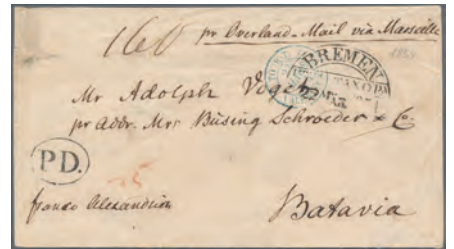 160 pr Overland-Mail via Marseille
1854
BREMEN
Mr Adolph Vogen
pr addr. Mrs Büsing Schroeder & Co.
P.D.
franco Alexandrien
Batavia